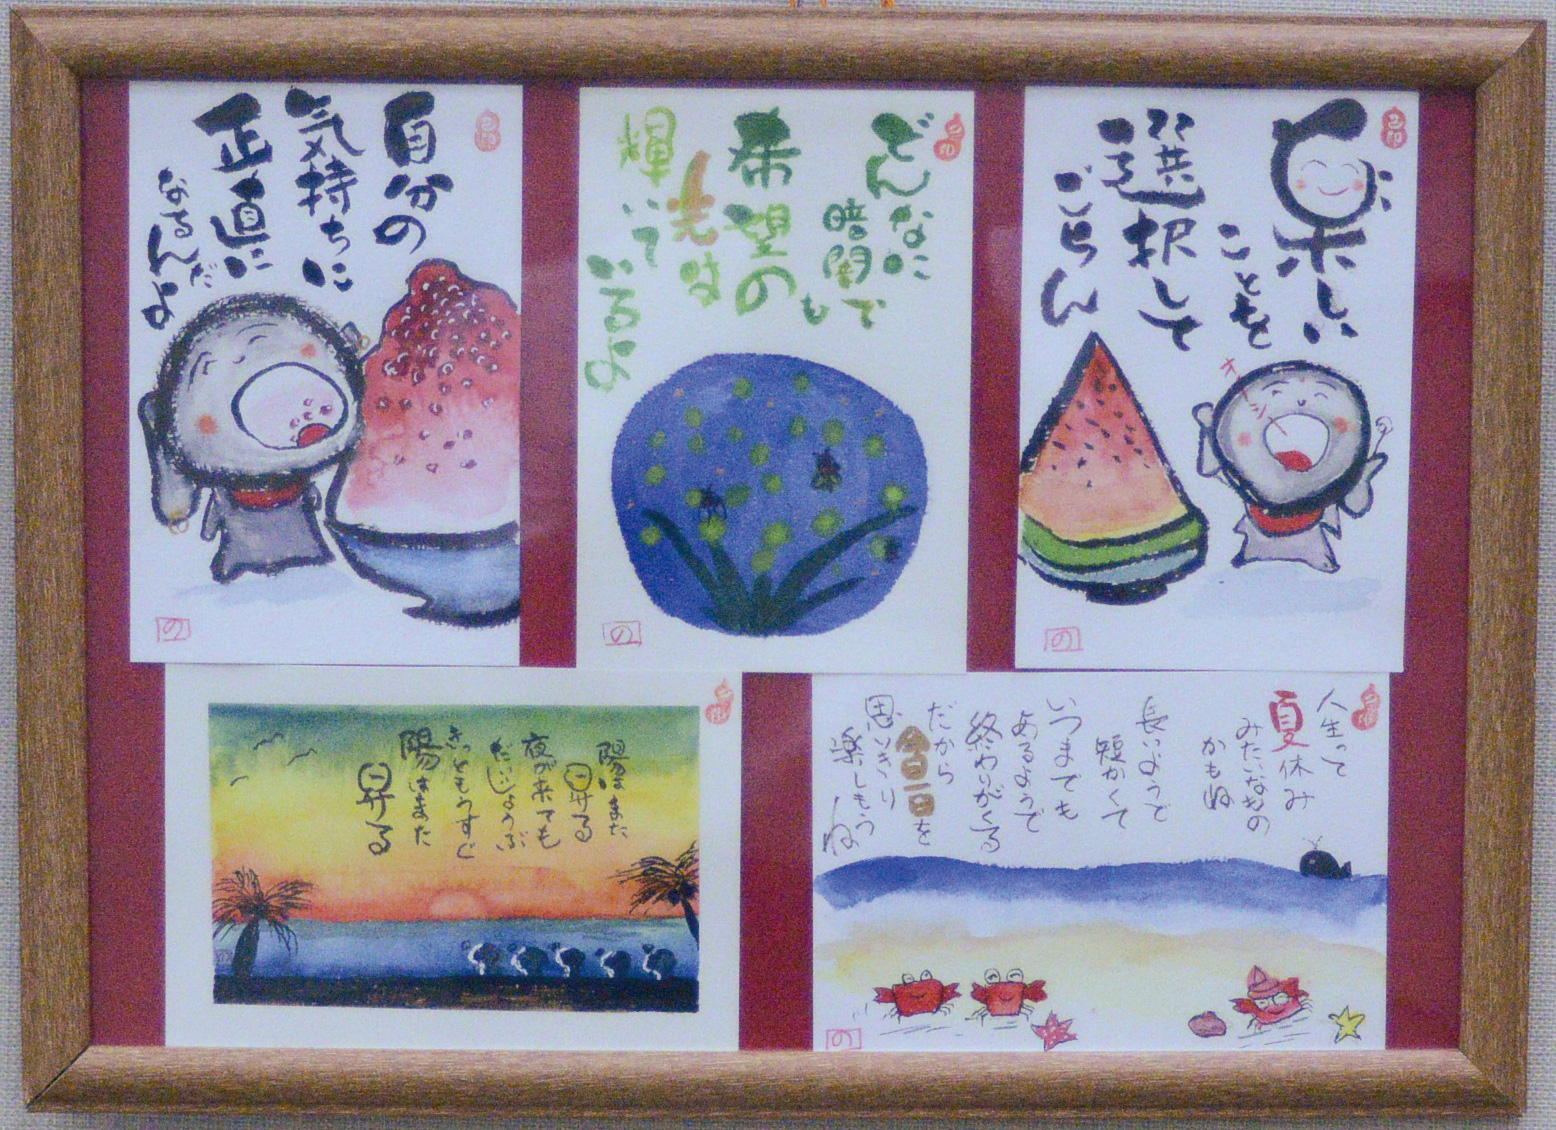 自分の
気持ちに
正直に
なるんだ
よ
の
どんなに
暗闇で
も
希望の
光は
輝いて
いるよ
の
楽しい
ことを
選択して
ごらん
キーン
の
陽はまた
昇る
夜が来ても
だいじょうぶ
きっともうすぐ
陽はまた
昇る
人生って
夏休み
みたいなもの
かもね
長いようで
短かくて
いつまでも
あるようで
終わりがくる
だから
今日一日を
思いきり
楽しもう
ね
の